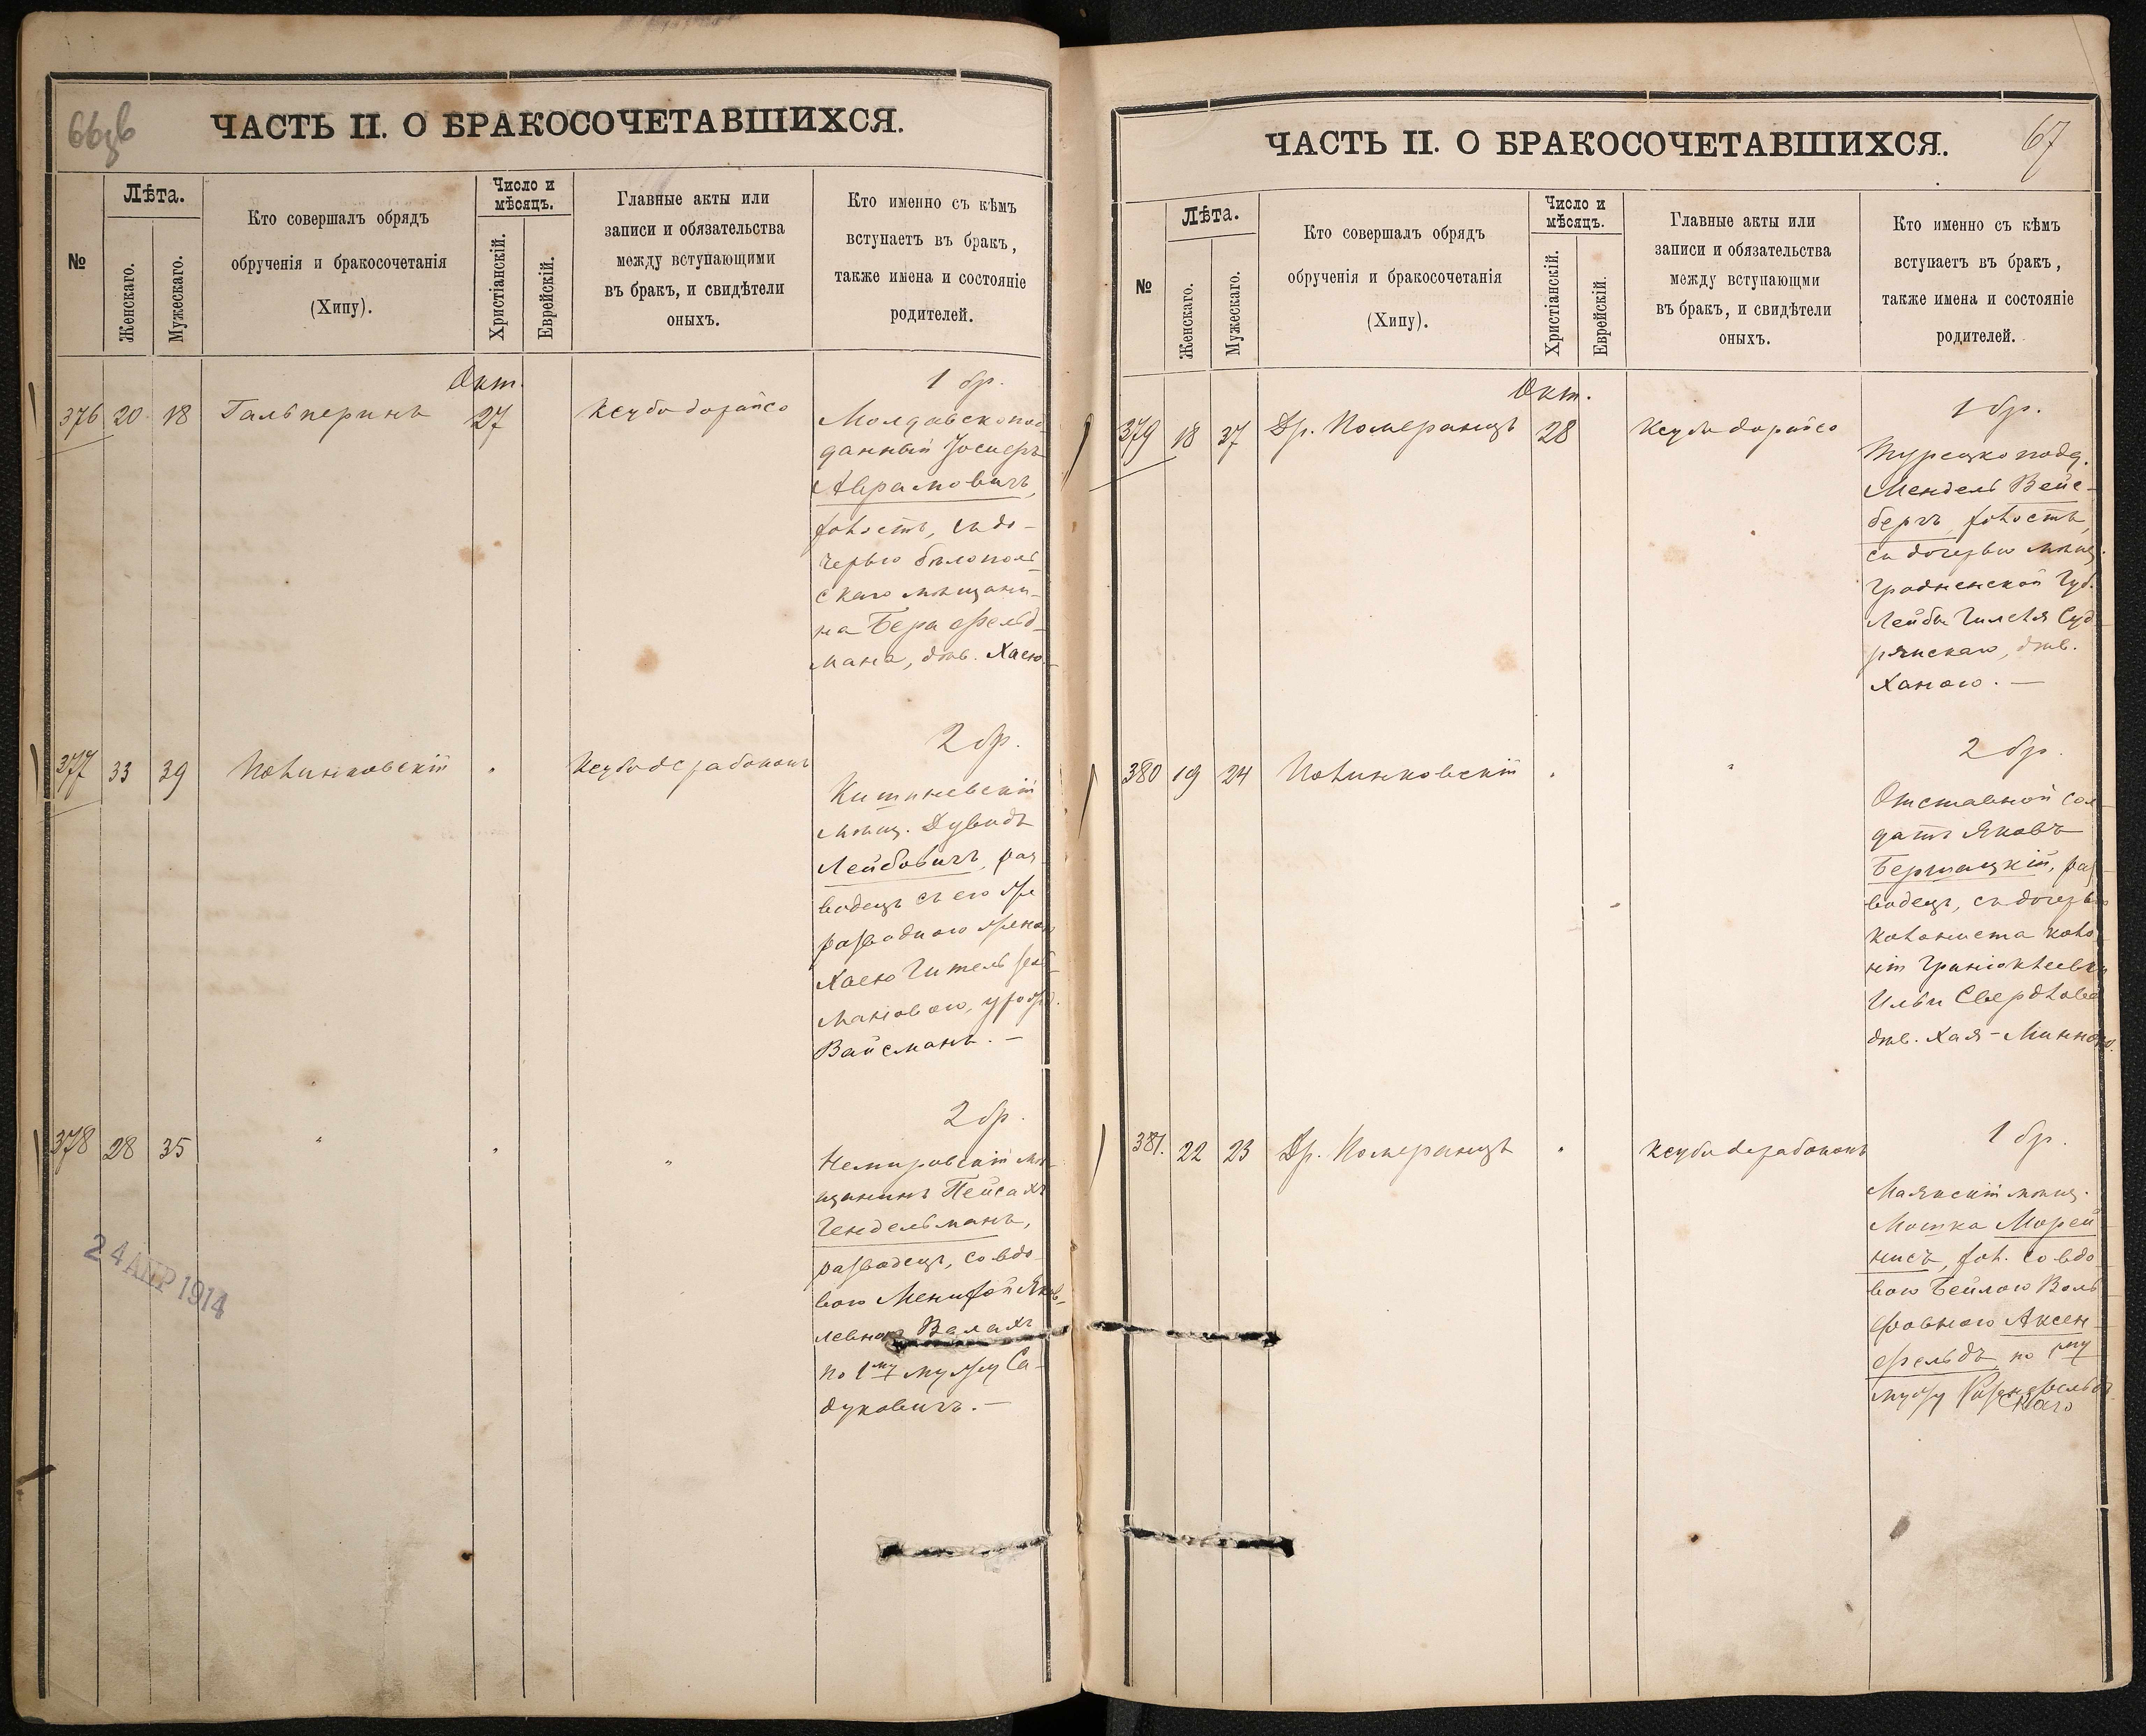 66об
ЧАСТЬ II. О БРАКОСОЧЕТАВШИХСЯ.
№
Лѣта.
Женскаго.
Мужескаго.
Кто совершалъ обрядъ
обрученія и бракосочетанія
(Хипу).
Число и
мѣсяцъ.
Христіанскій.
Еврейскій.
Главные акты или
записи и обязательства
между вступающими
въ бракъ, и свидѣтели
оныхъ.
Кто именно съ кѣмъ
вступаетъ въ бракъ,
также имена и состояніе
родителей.
Окт.
376 20 18 Гальперинъ 27 Ксубо дорайсо
1 бр.
Молдавскопод-
данный Іосифъ
Аврамовичъ,
холостъ, съ до-
черью бѣлополь-
скаго мѣщани-
на Бера Фельд-
мана, дѣв. Хаею
377 33 39 Полинковскій " Ксубо де рабононъ
2 бр.
Кишиневскій
мѣщ. Дувидъ
Лейбовичъ, раз-
водецъ съ его же
разводною женою
Хаею Гитель
мановою, урожд.
Вайсманъ. —
378 28 35 " " "
2 бр.
Немировскій мѣ-
щанинъ Пейсахъ
Гендельманъ,
разводецъ, со вдо-
вою Менихой Яков-
левною Валахъ
по 1му мужу Са-
дуковичъ. —
24 АПР 1914
67
ЧАСТЬ II. О БРАКОСОЧЕТАВШИХСЯ.
№
Лѣта.
Женскаго.
Мужескаго.
Кто совершалъ обрядъ
обрученія и бракосочетанія
(Хипу).
Число и
мѣсяцъ.
Христіанскій.
Еврейскій.
Главные акты или
записи и обязательства
между вступающми
въ бракъ, и свидѣтели
оныхъ.
Кто именно съ кѣмъ
вступаетъ въ бракъ,
также имена и состояніе
родителей.
Окт.
379 18 37 Др. Померанцъ 28 Ксубо дорайсо
1 бр.
Турецкоподд.
Мендель Вейс-
бергъ, холостъ,
съ дочерью мѣщ.
Гродненской Губ.
Лейбы Гилеля Суд-
рянскаго, дѣв.
Ханою. —
380 19 24 Полинковскій " "
2 бр.
Отставной сол-
датъ Яковъ
Бершацкій, раз-
водецъ, съ дочерью
колониста коло-
ніи
Ильи Свердлова
дѣв. Хая-Минною.
381. 22 23 Др. Померанцъ " Ксубо де рабононъ
1 бр.
Маякскій мѣщ.
Мошка Морей-
нисъ, хол. со вдо-
вою Бейлою Воль-
фовною Аксен-
фельдъ, по 1му
мужу